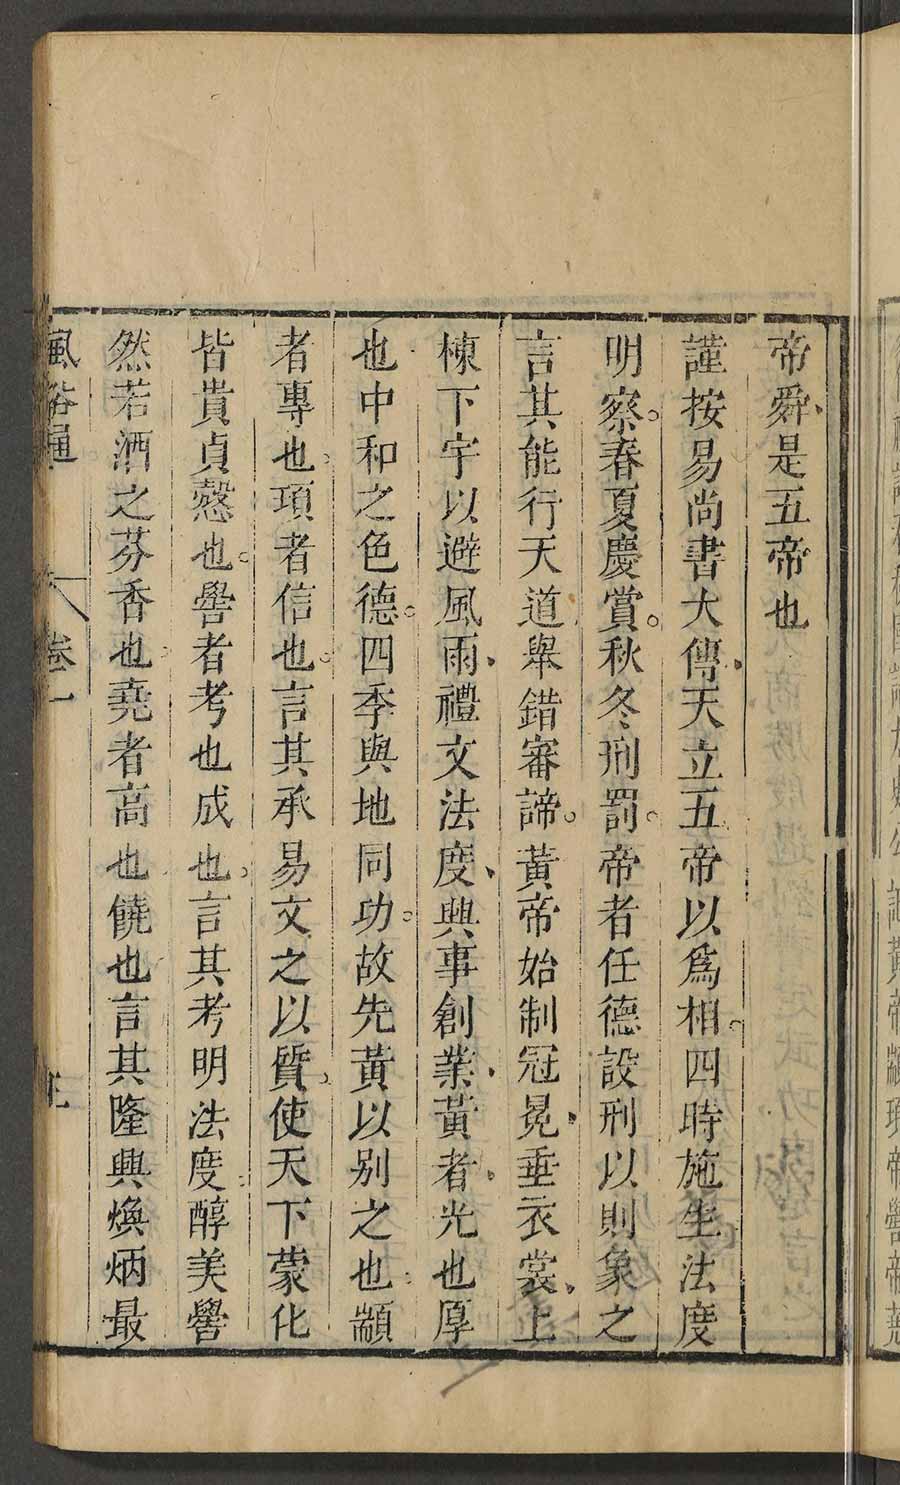 帝舜是五帝也
謹按易尚書大傳天立五帝以爲相四時施生法度
明察春夏慶賞秋冬刑罰帝者任德設刑以則象之
言其能行天道舉錯審諦黃帝始制冠冕垂衣裳上
棟下宇以避風雨禮文法度興事創業黃者光也厚
也中和之色德四季與地同功故先黃以别之也顓
者專也頊者信也言其承易文之以質使天下蒙化
皆貴貞愨也嚳者考也成也言其考明法度醇美嚳
然若酒之芬香也堯者高也饒也言其隆興煥炳最
風俗通 卷一